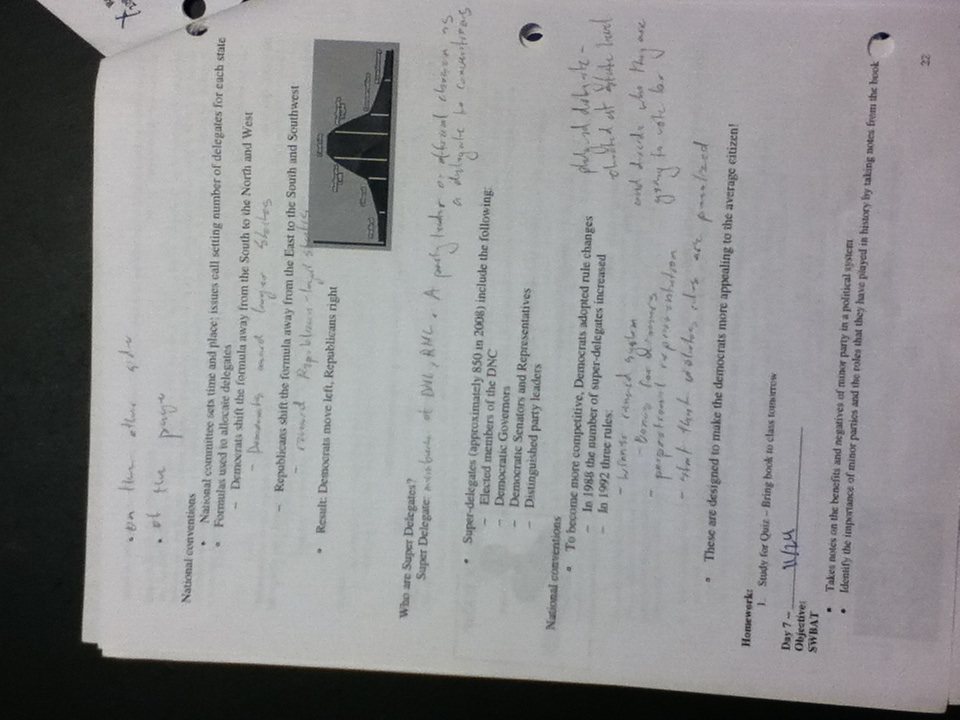 • on the other side
• of the page
National conventions
• National committee sets time and place; issues call setting number of delegates for each state
• Formulas used to allocate delegates
– Democrats shift the formula away from the South to the North and West
– Democrats larger States
– Republicans shift the formula away from the East to the South and Southwest
– reward Republican-loyal states
• Result: Democrats move left, Republicans right
Radical
Liberal
Moderate
Left
Moderate
Right
Conservative
Reactionary
Who are Super Delegates?
Super Delegate: members of DNC, RNC. A party leader or official chosen as
a delegate to conventions
• Super-delegates (approximately 850 in 2008) include the following:
– Elected members of the DNC
– Democratic Governors
– Democratic Senators and Representatives
– Distinguished party leaders
National conventions
• To become more competitive, Democrats adopted rule changes
– In 1988 the number of super-delegates increased
– In 1992 three rules:
– winner reward system
– Bonus for winners
– proportional representation
– stat that violates rules are penalized
pledged delegate –
elected at State level
and decide who they are
going to vote for
• These are designed to make the democrats more appealing to the average citizen!
Homework:
1. Study for Quiz – Bring book to class tomorrow
Day 7 – 11/24
Objective:
SWBAT
• Takes notes on the benefits and negatives of minor party in a political system
• Identify the importance of minor parties and the roles that they have played in history by taking notes from the book
22